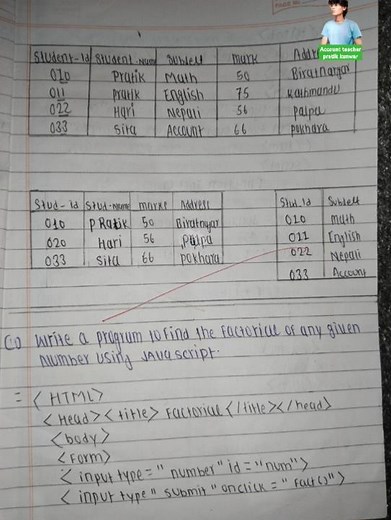 Account teacher
pratik kunwar
Student-Id Student-Name Subject mark Addr
010 Pratik Math 50 Biratnagar
011 Pratik English 75 Kathmandu
022 Hari Nepali 56 palpa
033 Sita Account 66 pokhara
Stud-Id Stud-Name marks Address
010 PRatik 50 Biratnagar
020 Hari 56 palpa
033 Sita 66 pokhara
Stud-Id Subject
010 math
011 English
022 Nepali
033 Account
Write a program to find the factorial of any given
Number using JavaScript.
= <HTML>
<Head><title> Factorial </title></head>
<body>
<Form>
<input type = "number" id = "num">
<input type "submit" onclick = "fact()">